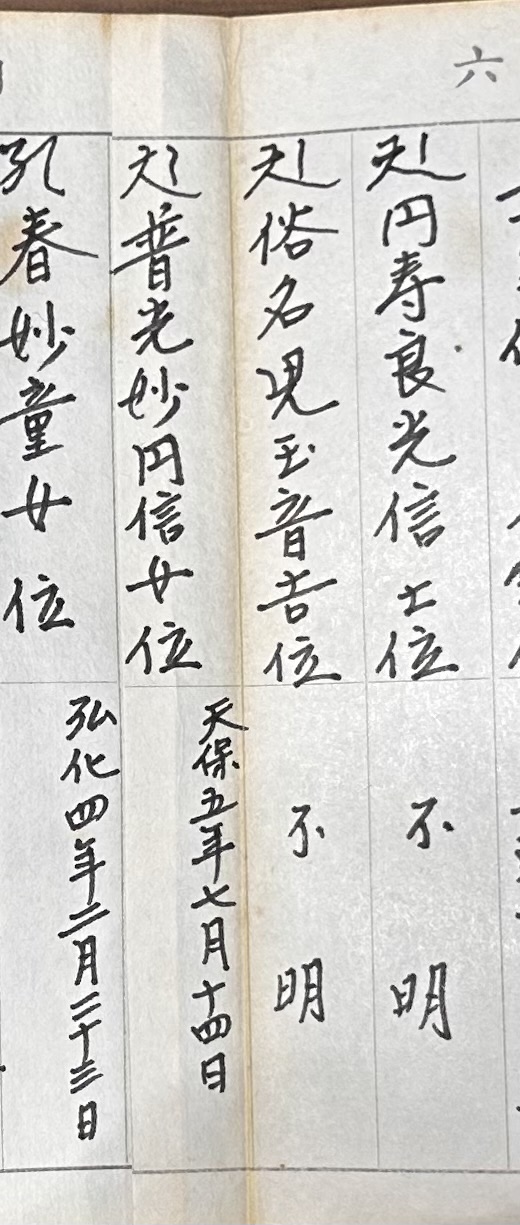 六
円寿良光信士位
不明
俗名児玉音吉位
不明
普光妙円信女位
天保五年七月十四日
春妙童女位
弘化四年二月二十三日